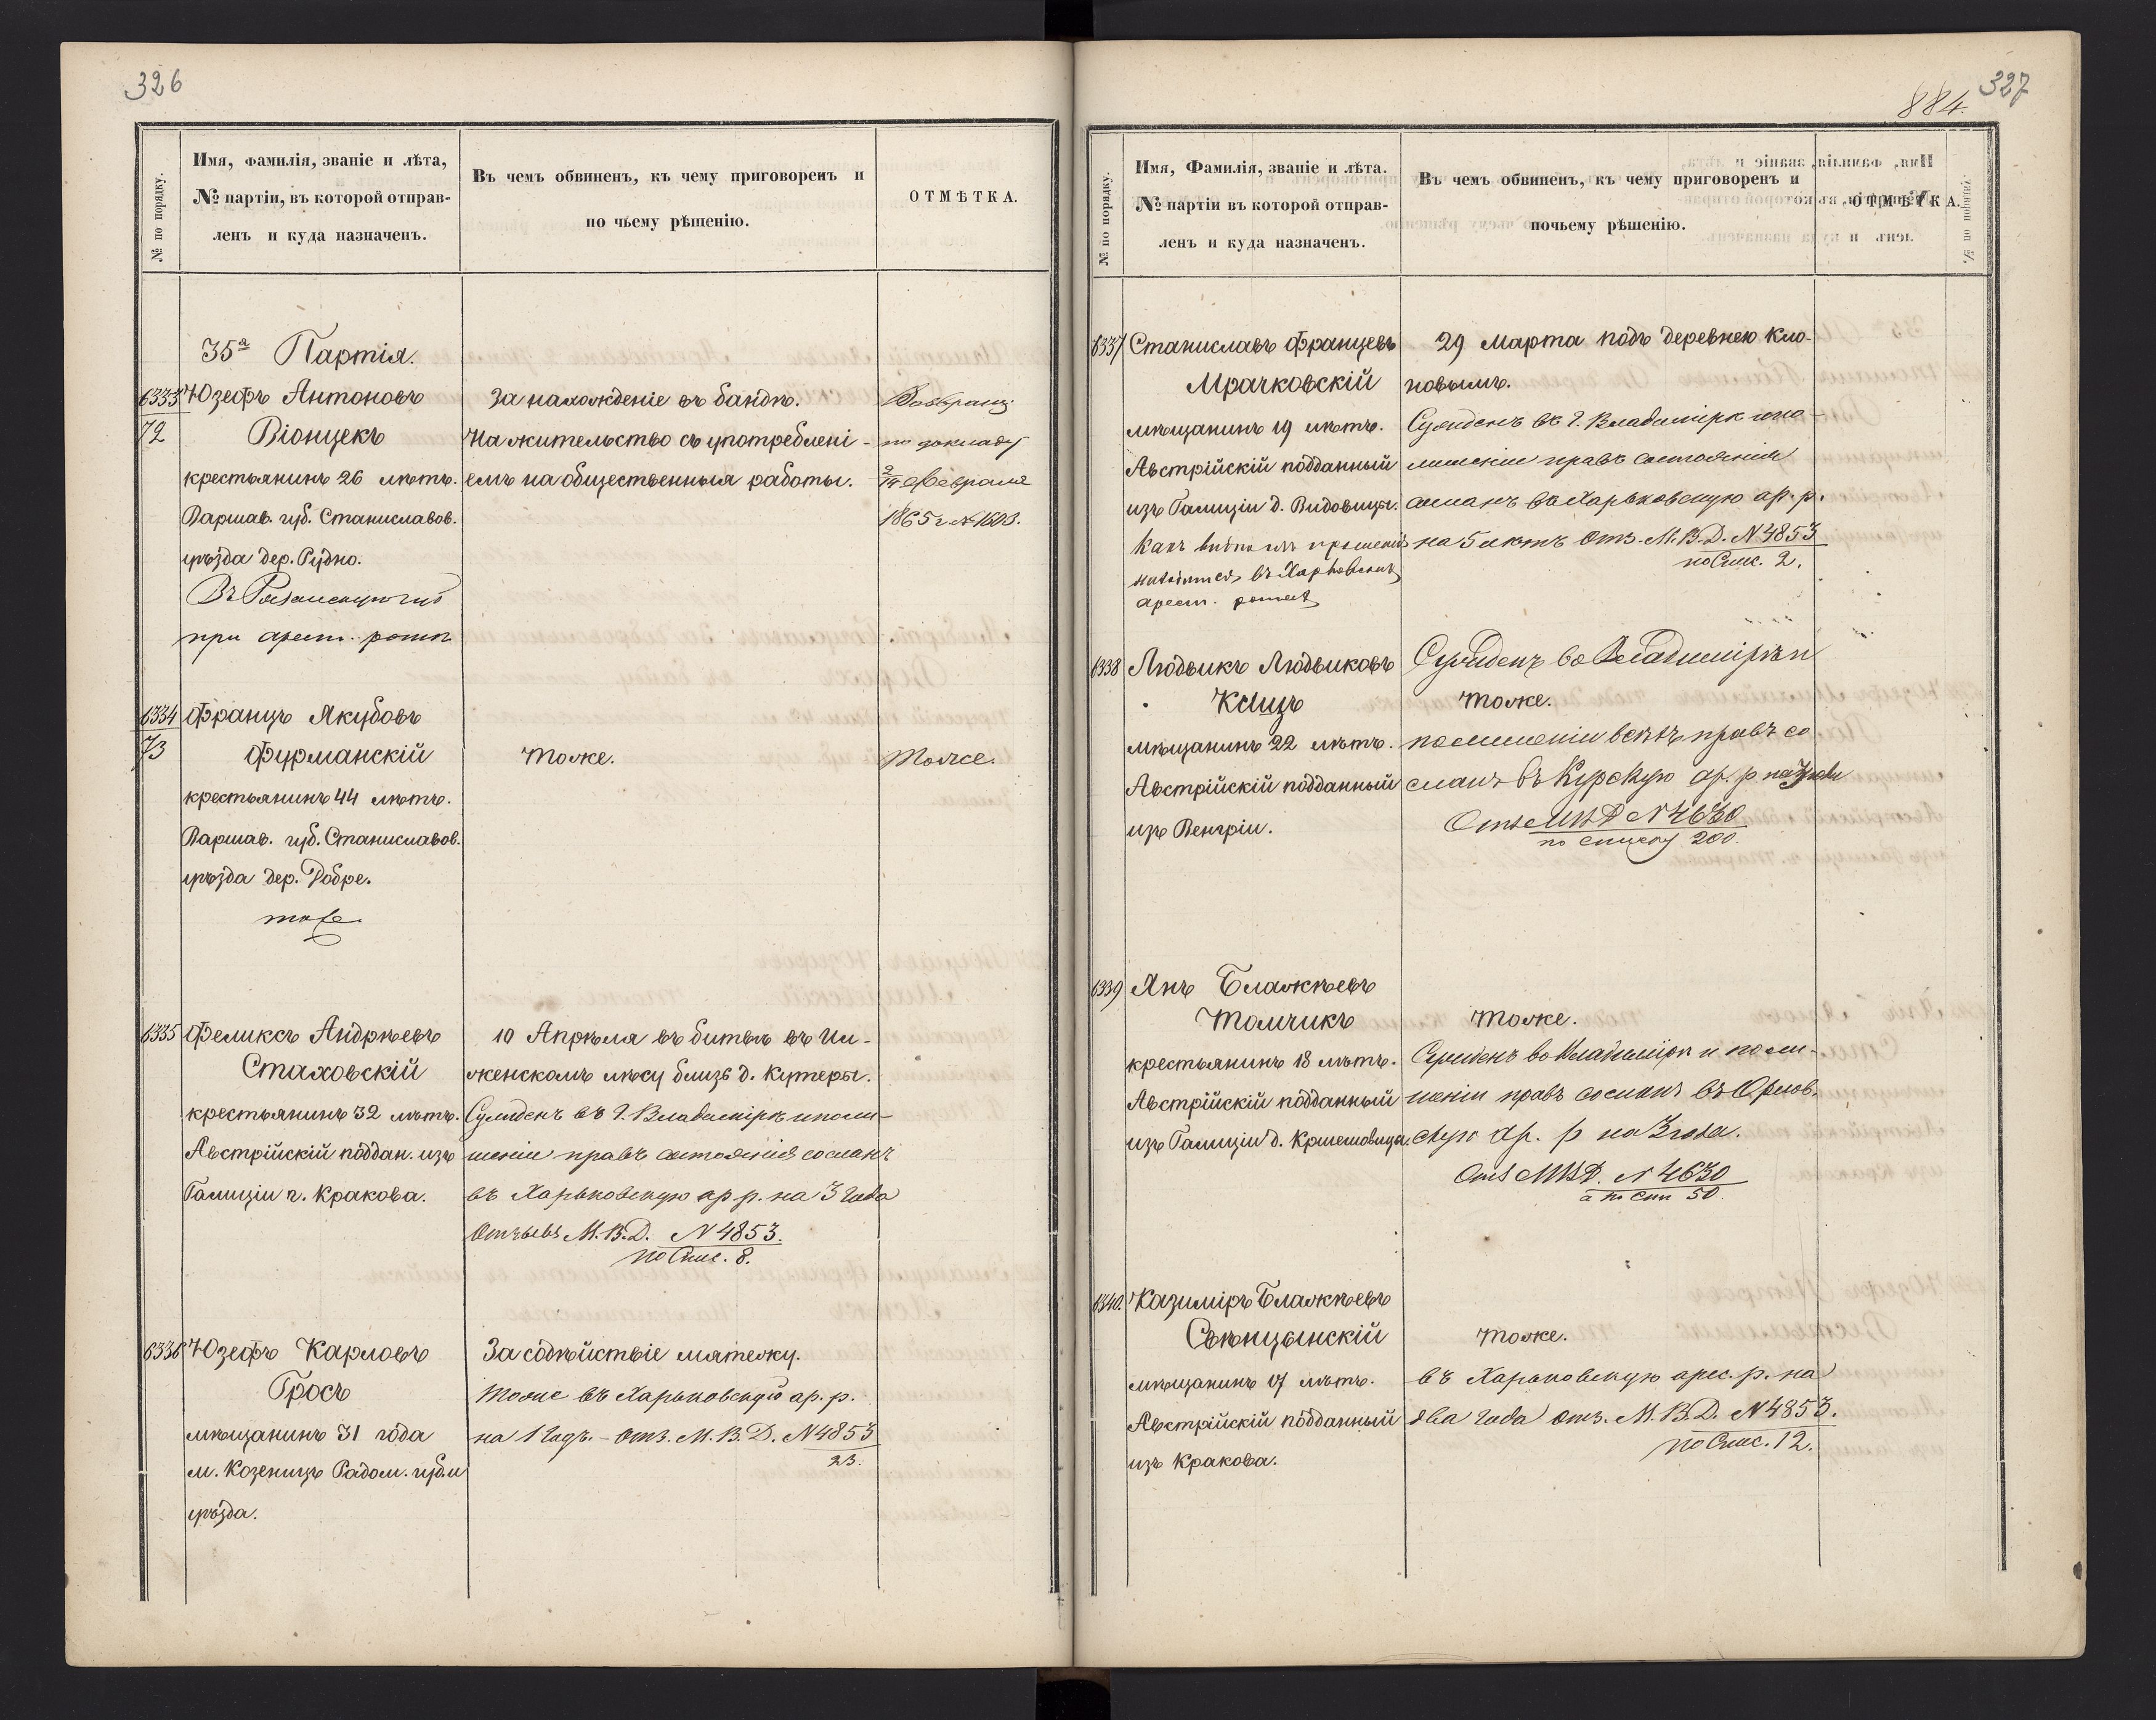 326
№ по порядку.
Имя, фамилія, званіе и лѣта,
№ партіи, въ которой отправ-
ленъ и куда назначенъ.
Въ чемъ обвиненъ, къ чему приговоренъ и
по чьему рѣшенію.
ОТМѢТКА.
35я Партія.
6333
72
Юзефъ Антоновъ
Віонцекъ
крестьянинъ 26 лѣтъ.
Варшав. губ. Станиславов.
уѣзда дер. Рудно.
Въ Рязанскую губ
при арест. ротѣ
За нахожденіе въ бандѣ.
На жительство съ употреблені-
емъ на общественныя работы.
Возвращ.
по докладу
2/14 Февраля
1865 г. № 1603.
6334
73
Францъ Якубовъ
Фурманскій
крестьянинъ 44 лѣтъ.
Варшав. губ. Станиславов.
уѣзда дер. Добре.
тоже
Тоже.
Тоже.
6335
Феликсъ Андрѣевъ
Стаховскій
крестьянинъ 32 лѣтъ.
Австрійскій поддан. изъ
Галиціи г. Кракова.
10 Апрѣля въ битвѣ въ Ил-
женскомъ лѣсу близъ д. Кутеры.
Сужденъ въ г. Владимірѣ и поли-
шеніи правъ состоянія сосланъ
въ Харьковскую ар. р. на 3 года
Отзывъ М.В.Д. N 4853.
по Спис. 8.
6336
Юзефъ Карловъ
Гросъ
мѣщанинъ 31 года
м. Козеницъ Радом. губ. и
уѣзда.
За содѣйствіе мятежу.
Тоже въ Харьковскую ар. р.
на 1 годъ. - Отз. М.В.Д. N 4853
23.
327
884.
№ по порядку.
Имя, Фамилія, званіе и лѣта.
№ партіи въ которой отправ-
ленъ и куда назначенъ.
Въ чемъ обвиненъ, къ чему приговоренъ и
почьему рѣшенію.
ОТМѢТКА.
6337
Станиславъ Францевъ
Мрачковскій
мѣщанинъ 19 лѣтъ.
Австрійскій подданный
изъ Галиціи д. Видовицы.
Какъ видно изъ прошенія
находится въ Харьковской
арест. ротѣ
29 Марта подъ деревнею Кло-
новымъ.
Сужденъ въ г. Владимірѣ и по
лишеніи правъ состоянія
сосланъ въ Харьковскую ар. р.
на 5 лѣтъ Отз. М.В.Д. N 4853
по Спис. 2.
6338
Людвикъ Людвиковъ
Кацъ
мѣщанинъ 22 лѣтъ.
Австрійскій подданный
изъ Венгріи.
Сужденъ во Владимірѣ и
Тоже.
по лишеніи всѣхъ правъ со
сланъ въ Курскую ар. р на 3 года
Отз МВД N 4630
по списку 200.
6339
Янъ Блажѣевъ
Томчикъ
крестьянинъ 18 лѣтъ.
Австрійскій подданный
изъ Галиціи д. Кршешовица.
Тоже.
Сужденъ во Владимірѣ и по ли-
шеніи правъ сосланъ въ Орлов-
скую ар. р на 3 года.
Отз МВД. N 4630
а по спи 50.
6340.
Казиміръ Блажѣевъ
Свѣнцынскій
мѣщанинъ 17 лѣтъ.
Австрійскій подданный
изъ Кракова.
Тоже.
въ Харьковскую арес. р. на
два года Отз. М.В.Д. N 4853.
по Спис. 12.